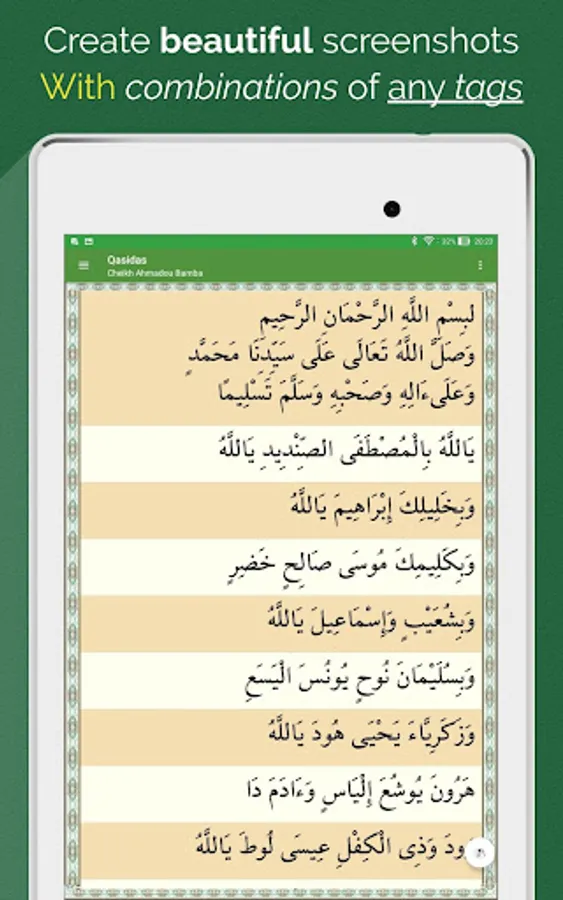 Create beautiful screenshots
With combinations of any tags
32% 20:23
Qasidas
Cheikh Ahmadou Bamba
لبِسْمِ اللَّهِ الرَّحْمَانِ الرَّحِيمِ
وَصَلَّ اللَّهُ تَعَالَى عَلَى سَيِّدِنَا مَحَمَّدٍ
وَعَلَىءَالِهِ وَصَحْبِهِ وَسَلَّمَ تَسْلِيمًا
يَاللَّهُ بِالْمُصْطَفَى الصِّنْدِيدِ يَاللَّهُ
وَبِخَلِيلِكَ إِبْرَاهِيمَ يَاللَّهُ
وَبِكَلِيمِكَ مُوسَى صَالِحٍ خَضِرٍ
وَبِشُعَيْبٍ وَإِسْمَاعِيلَ يَاللَّهُ
وَبِسُلَيْمَانَ نُوحٍ يُونُسَ الْيَسَعِ
وَزَكَرِيَّاءَ يَحْيَى هُودَ يَاللَّهُ
هَرُونَ يُوشُعَ إِلْيَاسٍ وَءَادَمَ دَا
وُودَ وَذِى الْكِفْلِ عِيسَى لُوطَ يَاللَّهُ